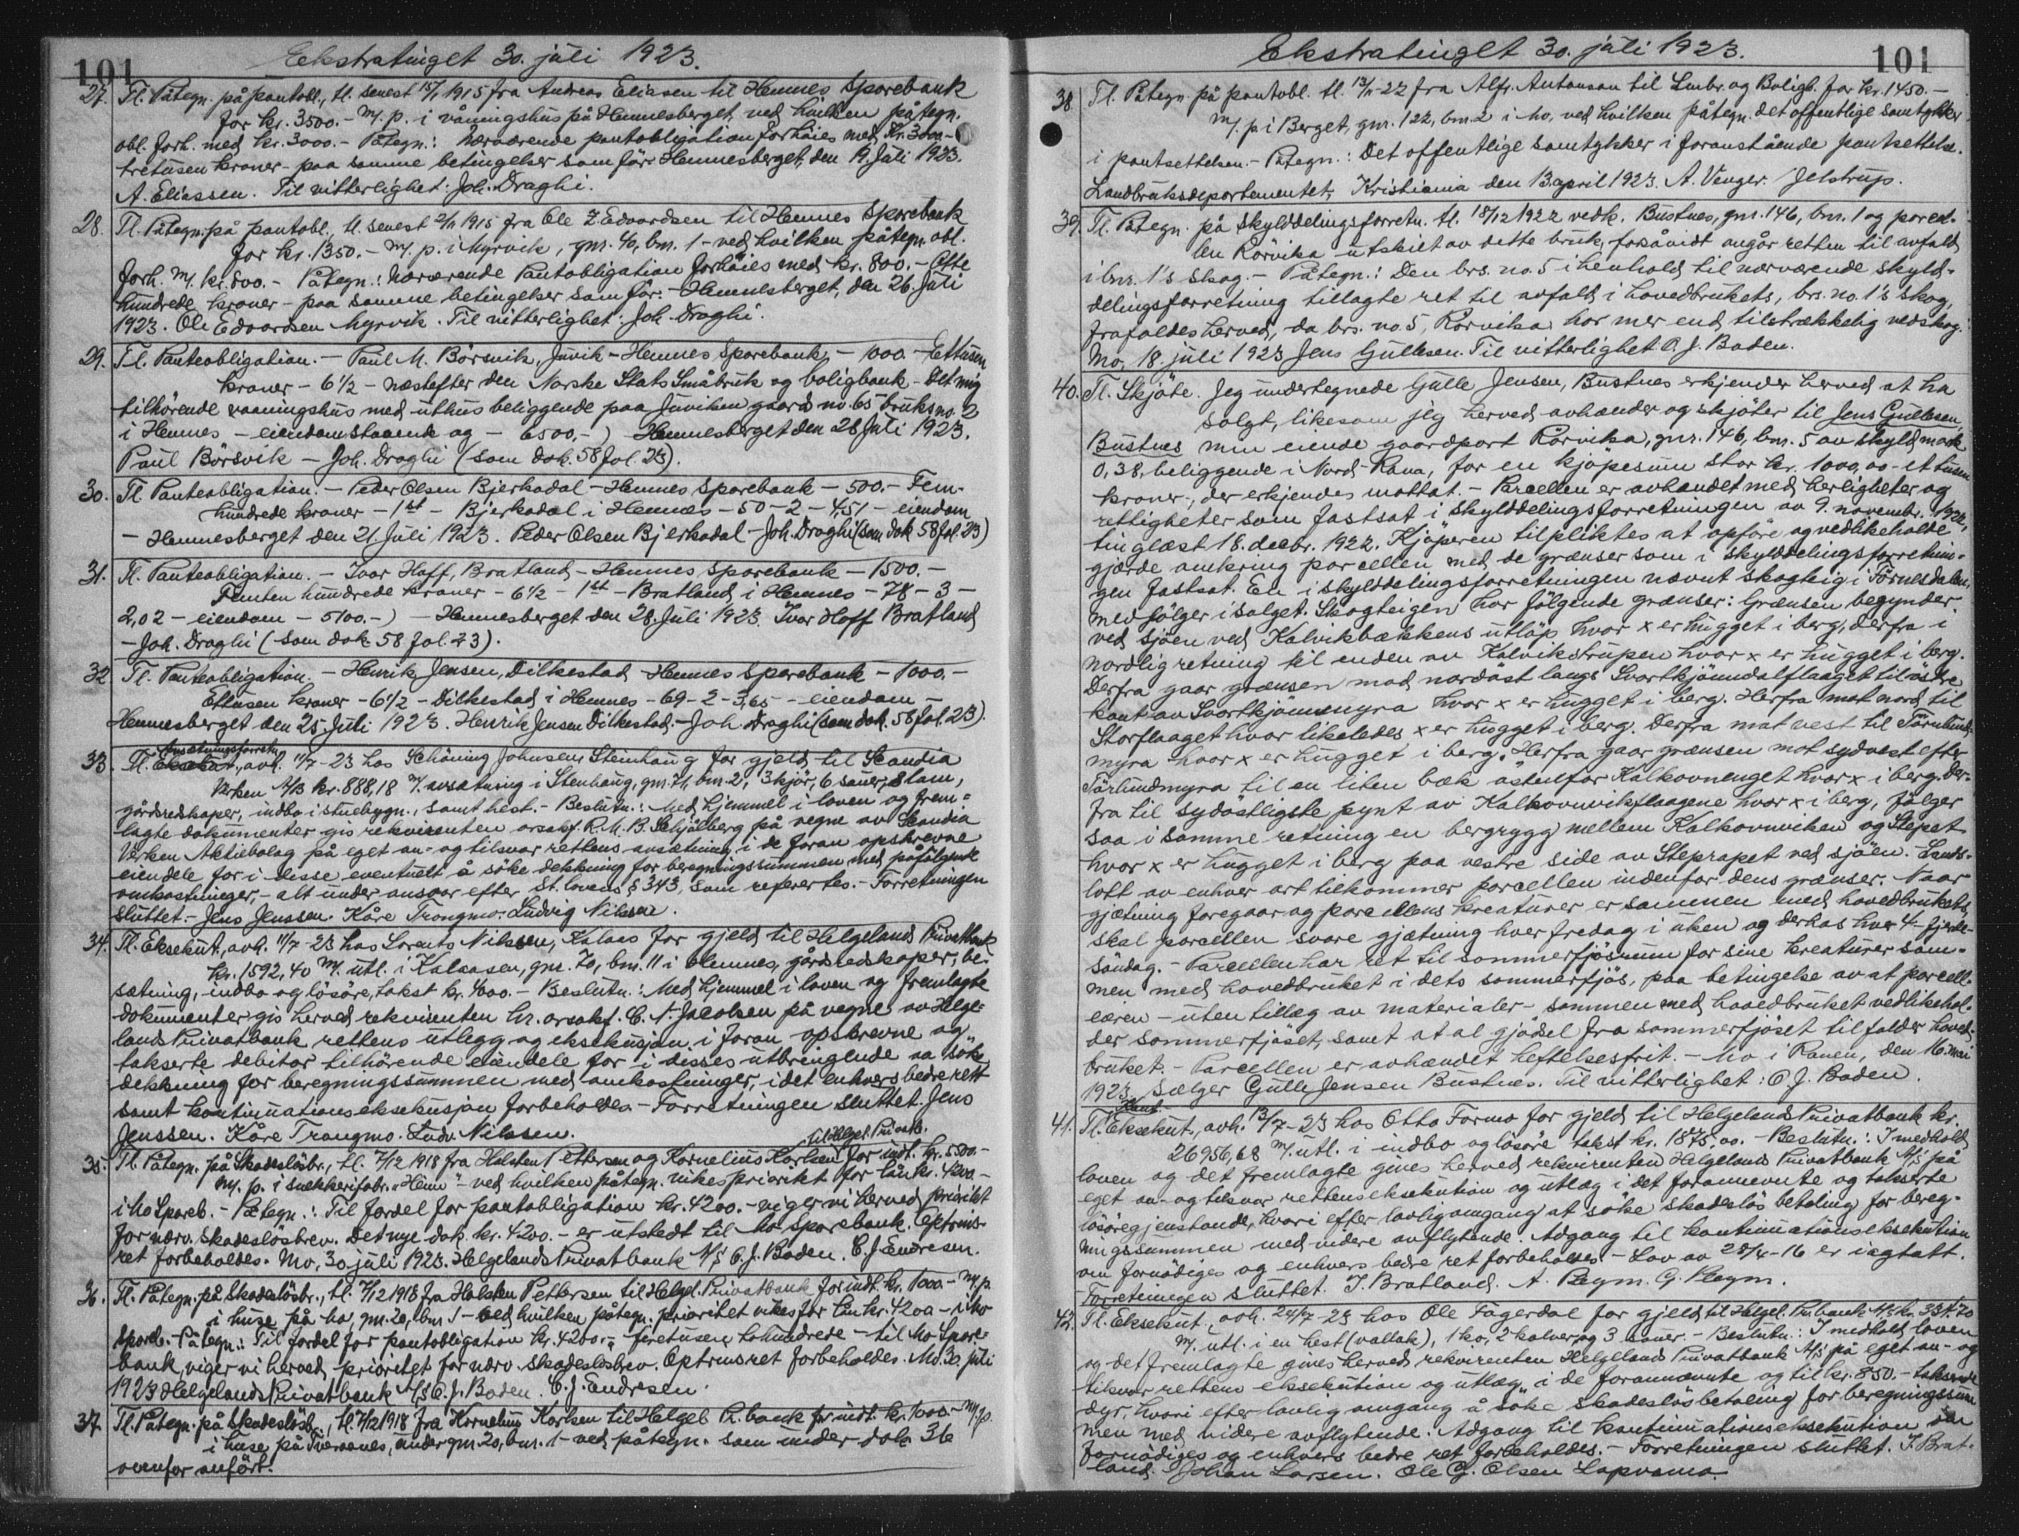 101
Ekstratinget 30. juli 1923.
27. Tl. Påtegn. på pantobl., tl. senest 15/11 1915 fra Andreas Eliassen til Hemnes Sparebank
for kr. 3500.- m/ p. i våningshus på Hemnesberget, ved hvilken påtegn.
obl. forh. med kr. 3000.- Påtegn.: Nærværende pantobligation forhöies med Kr. 3000.-
tretusen kroner - paa samme betingelser som för. Hemnesberget, den 19. Juli 1923.
A. Eliassen. Til vitterlighet: Joh. Draghi.
28. Tl. Påtegn. på pantobl., tl. senest 2/11 1915 fra Ole Z Edvardsen til Hemnes Sparebank
for kr. 1350.- m/ p. i Myrvik, gnr. 40, bnr. 1 - ved hvilken påtegn. obl.
forh. m/ kr. 800.- Påtegn.: Nærværende Pantobligation forhöies med kr. 800.- Otte
hundrede kroner - paa samme betingelser som för. - Hemnesberget, den 26. Juli
1923. Ole Edvardsen Myrvik. Til vitterlighet: Joh. Draghi.
29. Tl. Panteobligation. - Paul M. Börsvik, Juvik - Hemnes Sparebank - 1000.- Ettusen
kroner - 6 1/2 - næstefter den Norske Stats Småbruk og boligbank - Det mig
tilhörende vaaningshus med uthus beliggende paa Juviken gaards no. 65 bruks no. 2
i Hemnes - eiendomstaamt og - 6500,-) Hemnesberget den 28 Juli 1923.
Paul Börsvik - Joh. Draghi (som dok. 58 fol. 23).
30. Tl. Panteobligation. - Peder Olsen Bjerkadal - Hemnes Sparebank - 500.- Fem-
hundrede kroner - 1st - Bjerkadal i Hemnes - 50 - 2 - 4,51 - eiendom
- Hemnesberget den 21. Juli 1923. Peder Olsen Bjerkadal - Joh. Draghi (som dok 58 fol. 23)
31. Tl. Panteobligation. - Ivar Hoff, Bratland - Hemnes Sparebank - 1500.-
Femten hundrede kroner - 6 1/2 - 1st - Bratland i Hemnes - 78 - 3 -
2,02 - eiendom - 5100.-) - Hemnesberget den 28. Juli 1923. Ivar Hoff Bratland
- Joh. Draghi (som dok 58 fol. 23).
32 Tl. Panteobligation. - Henrik Jensen, Dilkestad - Hemnes Sparebank - 1000.-
Ettusen kroner - 6 1/2 - Dilkestad i Hemnes - 69 - 2 - 3,65 - eiendom -
Hemnesberget den 25. Juli 1923. Henrik Jensen Dilkestad - Joh. Draghi (som dok. 58 fol. 23).
33. Tl. Avsætningsforretn., avh. 11/7 - 23 hos Schöning Johnsen Stenhaug for gjeld til Scandia
Verken A/B kr. 888,18 m/ avsætning i Stenhaug, gnr. 71, bnr. 2, 3 kjör, 6 sauer, 2 lam,
gårdsredskaper, indbo i stuebygn., samt hest. - Beslutn.: Med hjemmel i loven og frem-
lagte dokumenter gis rekvirenten orsakf. R. M. B. Schjölberg på vegne av Scandia
Verken Aktiebolag på eget an- og tilsvar rettens avsætning i de foran opskrevne
eiendele for i disse eventuelt å söke dekkning for beregningssummen med påfölgende
omkostninger, - alt under ansvar efter st. lovens § 343, som refereres. - Forretningen
sluttet. - Jens Jenssen. Kåre Trongmo. Ludvig Nilssen.
34. Tl. Eksekut., avh. 11/7 - 23 hos Lorents Nilssen, Kalaas for gjeld til Helgeland Privatbank
kr. 1592,40 m/ utl. i Kalaasen, gnr. 70, bnr. 11 i Hemnes, gårdsredskaper, be-
sætning, indbo og lösöre, takst kr. 4000.- Beslutn.: Med hjemmel i loven og fremlagte
dokumenter gis herved rekvirenten hr. orsakf. C. A. Jacobsen på vegne av Helge-
lands Privatbank rettens utlegg og eksekusjon i foran opskrevne og
takserte debitor tilhörende eiendele for i disses utbringende at söke
dekkning for beregningssummen med omkostninger, i det enhvers bedre rett
samt kontinuationseksekusjon forbeholdes - Forretningen sluttet. Jens
Jenssen. Kåre Trongmo. Ludv. Nilssen.
til Helgel. Privatb.
35. Tl. Påtegn. på Skadeslösbr., tl. 7/12 1918 fra Halsten Pettersen og Kornelius Karlsen for indt. kr. 500.-
m/ p. i snekkerifabr. "Heim" - ved hvilken påtegn. vikes prioritet for lån kr. 4200.-
i Mo Spareb. - Påtegn.: Til fordel for pantobligation kr. 4200.- viger vi herved prioritet
for nærv. skadeslösbrev. Det nye dok. kr. 4200.- er utstedt til Mo Sparebank. Optrins-
ret forbeholdes. Mo, 30 juli 1923. Helgelands Privatbank A/S O. J. Baden. C. J. Endresen.
36. Tl. Påtegn. på Skadeslösbr., tl. 7/12 1918 fra Halsten Pettersen til Helgel. Privatbank for indt. kr. 1000.- m/ p.
i huse på Mo, gnr. 20, bnr. 1 - ved hvilken påtegn. prioritet vikes for lån kr. 4200 - i Mo
Spareb. - Påtegn.: Til fordel for pantobligation kr. 4200.- firetusen tohundrede - til Mo Spare-
bank, viger vi herved prioritet for nærv. skadeslösbrev. Optrinsret forbeholdes. Mo 30. juli
1923 Helgelands Privatbank A/S O. J. Baden. C. J. Endresen.
37. Tl. Påtegn. på Skadeslösbr., tl. 7/12 1918 fra Kornelius Karlsen til Helgel. Pr.bank for indt. kr. 1000.- m/ p.
i huse på Tveraanes, under gnr. 20, bnr. 1 - ved påtegn. som under dok 36
ovenfor anfört.
101
Ekstratinget 30. juli 1923.
38 Tl. Påtegn på pantobl. tl. 13/11-22 fra Alf. Antonsen til Småbr. og Boligb. for kr. 1450.-
m/ p i Berget, gnr. 122, bnr. 2 i Mo, ved hvilken påtegn. det offentlige samtykker
i pantsettelsen - Påtegn.: Det offentlige samtykker i foranstående pantsettelse.
Landbruksdepartementet, Kristiania den 13 april 1923. A. Venger. / Jelstrup.
39. Tl. Påtegn. på skylddelingsforretn. tl. 18/12 1922 vedk. Bustnes, gnr. 146, bnr. 1 og parcel-
len Rörvika utskilt av dette bruk, forsåvidt angår retten til avfald
i bnr. 1's skog. - Påtegn.: Den brs. no. 5 i henhold til nærværende skyld-
delingsforretning tillagte ret til avfald i hovedbrukets, brs. no. 1's skog,
frafaldes herved, da brs. no 5, Rörvika har mer end tilstrækkelig vedskog.
Mo, 18. juli 1923 Jens Gullesen. Til vitterlighet O. J. Baden.
40. Tl. Skjöte. Jeg undertegnede Gulle Jensen, Bustnes erkjender herved at ha
solgt, likesom jeg herved avhænder og skjöter til Jens Gullesen,
Bustnes min eiende gaardpart Rörvika, gnr. 146, bnr. 5 av skyld mark
0,38, beliggende i Nord-Rana, for en kjöpesum stor kr. 1000,00 - et tusen
kroner -, der erkjendes mottat. - Parcellen er avhændet med herligheter og
rettigheter som fastsat i skylddelingsforretningen av 9. november 1922,
tinglæst 18. decbr. 1922. Kjöperen tilpliktes at opföre og vedlikeholde
gjærde omkring parcellen med de grænser som i skylddelingsforretnin-
gen fastsat. En i skylddelingsforretningen nævnt skogteig i Törnesdalen,
medfölger i salget. Skogteigen har fölgende grænser: Grænsen begynder
ved sjöen ved Kalvikbækkens utlöp hvor x er hugget i berg, derfra i
nordlig retning til enden av Kalvikstrupen hvor x er hugget i berg.
Derfra gaar grænsen mod nordöst langs Svortkjönndalflaaget til östre
kant av Svortkjönnmyra hvor x er hugget i berg. Herfra mot nord til
Storflaaget hvor likeledes x er hugget i berg. Derfra mot vest til Törnlund-
myra hvor x er hugget i berg. Herfra gaar grænsen mot sydvest efter
Törlundmyra til en liten bæk östenfor Kalkovnenget hvor x i berg. Der-
fra til sydöstligste pynt av Kalkovnvikflaagene hvor x i berg, fölger
saa i samme retning en bergrygg mellem Kalkovnviken og Stepet
hvor x er hugget i berg paa vestre side av Steprapet ved sjöen. Lands-
lott av enhver art tilkommer parcellen indenfor dens grænser. Naar
gjætning foregaar og parcellens kreaturer er sammen med hovedbrukets,
skal parcellen svare gjætning hver fredag i uken og derhos hver 4 fjerde
söndag. - Parcellen har ret til sommerfjösrum for sine kreaturer sam-
men med hovedbruket i dets sommerfjös, paa betingelse av at parcell-
eieren - uten tillæg av materialer - sammen med hovedbruket vedlikehol-
der sommerfjöset, samt at al gjödsel fra sommerfjöset tilfalder hoved-
bruket. - Parcellen er avhændet heftelsesfrit. - Mo i Ranen, den 16. mai
1923 Sælger Gulle Jensen Bustnes. Til vitterlighet: O. J. Baden.
41. Tl. Eksekut., avh. 13/7 - 23 hos Otto Formo for gjeld til Helgelands Privatbank kr.
26956,68 m/ utl. i indbo og lösöre takst kr. 1875.00. - Beslutn.: I medhold
loven og det fremlagte gives herved rekvirenten Helgelands Privatbank A/S på
eget an- og tilsvar rettens eksekution og utlæg i det forannevnte og takserte
lösöregjenstande, hvori efter lovlig omgang at söke skadeslös betaling for bereg-
ningssummen med videre avflytende. Adgang til kontinuationseksekution
om fornödiges og enhvers bedre ret forbeholdes. - Lov av 28/4-16 er iagtatt.
Forretningen sluttet. J. Bratland. A. Meym. G. Meym.
42. Tl. Eksekut., avh. 24/7 - 23 hos Ole Fagerdal for gjeld til Helgel. Pr.bank A/S kr. 3347.20
m/ utl. i en hest (vallak), 1 ko, 2 kalver og 3 sauer. - Beslutn.: I medhold loven
og det fremlagte gives herved rekvirenten Helgelands Privatbank A/S på eget an- og
tilsvar rettens eksekution og utlæg i de forannevnte og til kr. 850.- takserte
dyr, hvori efter lovlig omgang å söke skadeslösbetaling for beregningssum-
men med videre avflytende. Adgang til kontinuationseksekution om
fornödiges og enhvers bedre ret forbeholdes. - Forretningen sluttet. J. Brat-
land. Johan Larsen. Ole G. Olsen Lapvama.